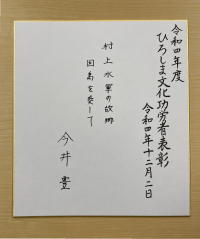 令和四年度
ひろしま文化功労者表彰
令和四年十二月二日
村上水軍の故郷
因島を愛して
今井豊